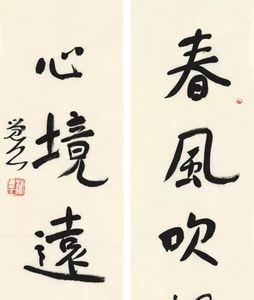 春風吹
心境遠